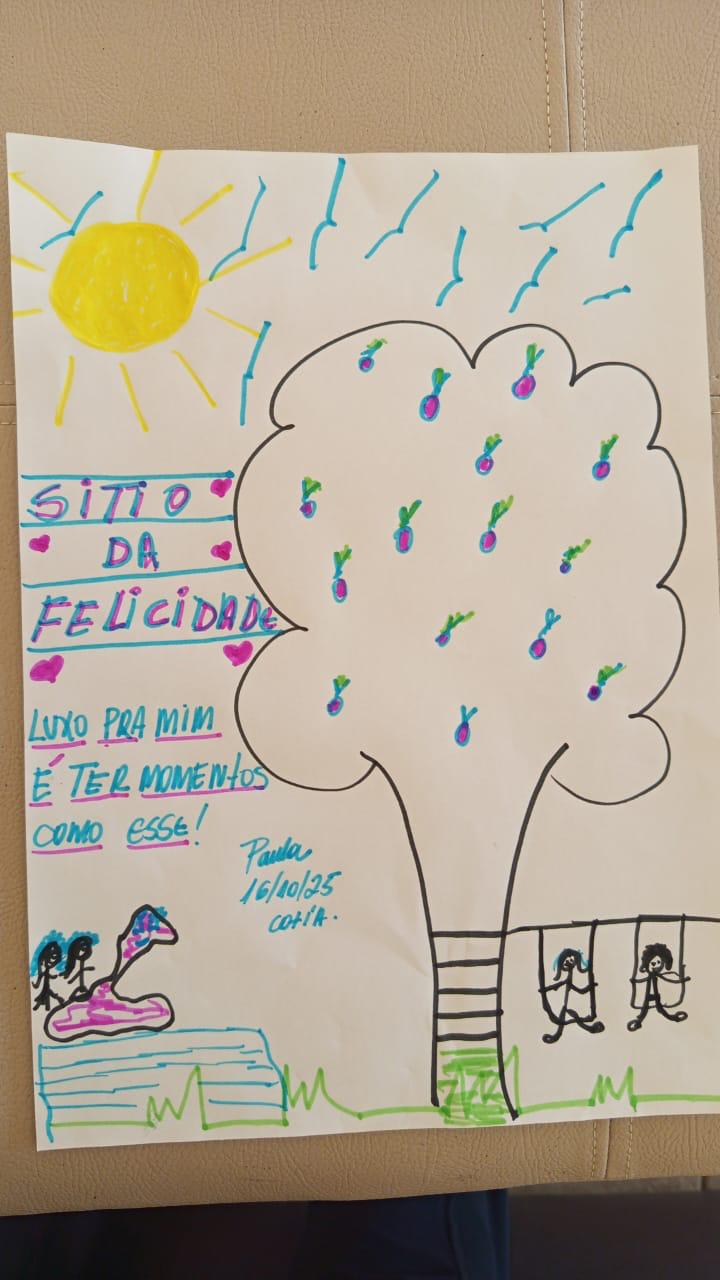 SiTiO
DA
FELiCiDADE
LUXO PRA MiM
É TER MOMENtOS
COMO ESSE!
Paula
16/10/25
COtiA.